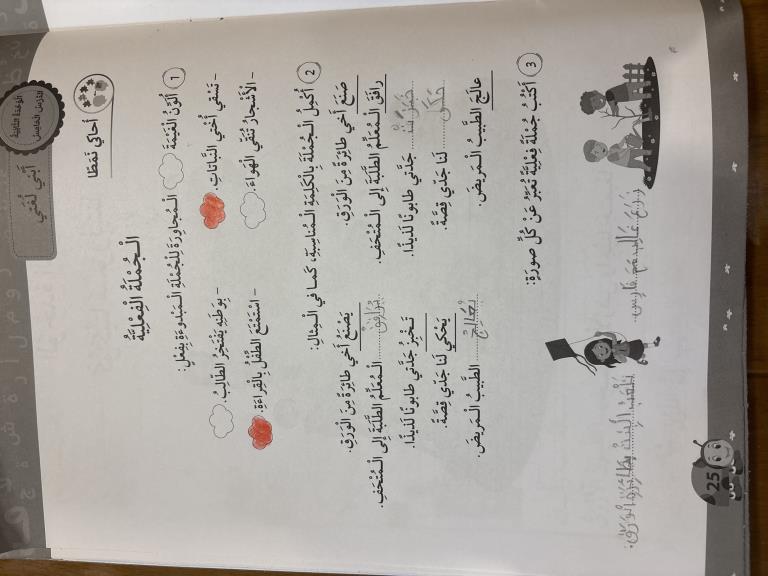 الْوَحْدَةُ الثَّانِيَةُ
الدَّرْسُ الْخَامِسُ
أَبْني لُغَتي
أُحاكي نَمَطًا
الْـجُمْلَةُ الْفِعْلِيَّةُ
1 أُلَوِّنُ الْغَيْمَةَ الْـمُجاوِرَةَ لِلْجُمْلَةِ الْـمَبْدوءَةِ بِفِعْلٍ:
- تَسْقي أُخْتي النَّباتاتِ. - بِوَطَنِهِ يَفْتَخِرُ الطّالِبُ.
- الْأَشْجارُ تُنَقّي الْهَواءَ. - اسْتَمْتَعَ الطِّفْلُ بِالْقِراءَةِ.
2 أُكْمِلُ الْـجُمْلَةَ بِالْكَلِمَةِ الْـمُناسِبَةِ، كَما في الْـمِثالِ:
صَنَعَ أَخي طائِرَةً مِنَ الْوَرَقِ. يَصْنَعُ أَخي طائِرَةً مِنَ الْوَرَقِ.
رافَقَ الْـمُعَلِّمُ الطَّلَبَةَ إِلى الْـمُتْحَفِ. يُرَافِقُ الْـمُعَلِّمُ الطَّلَبَةَ إِلى الْـمُتْحَفِ.
خَبَزَتْ جَدَّتي طابونًا لَذيذًا. تَـخْبِزُ جَدَّتي طابونًا لَذيذًا.
حَكَى لَنا جَدّي قِصَّةً. يَـحْكي لَنا جَدّي قِصَّةً.
عالَجَ الطَّبيبُ الْـمَريضَ. يُعَالِجُ الطَّبيبُ الْـمَريضَ.
3 أَكْتُبُ جُمْلَةً فِعْلِيَّةً تُعَبِّرُ عَنْ كُلِّ صورَةٍ:
زَرَعَ مَعَ فَارِس. تَلْعَبُ الْبِنْتُ بِطَائِرَةِ الْوَرَقِ.
25